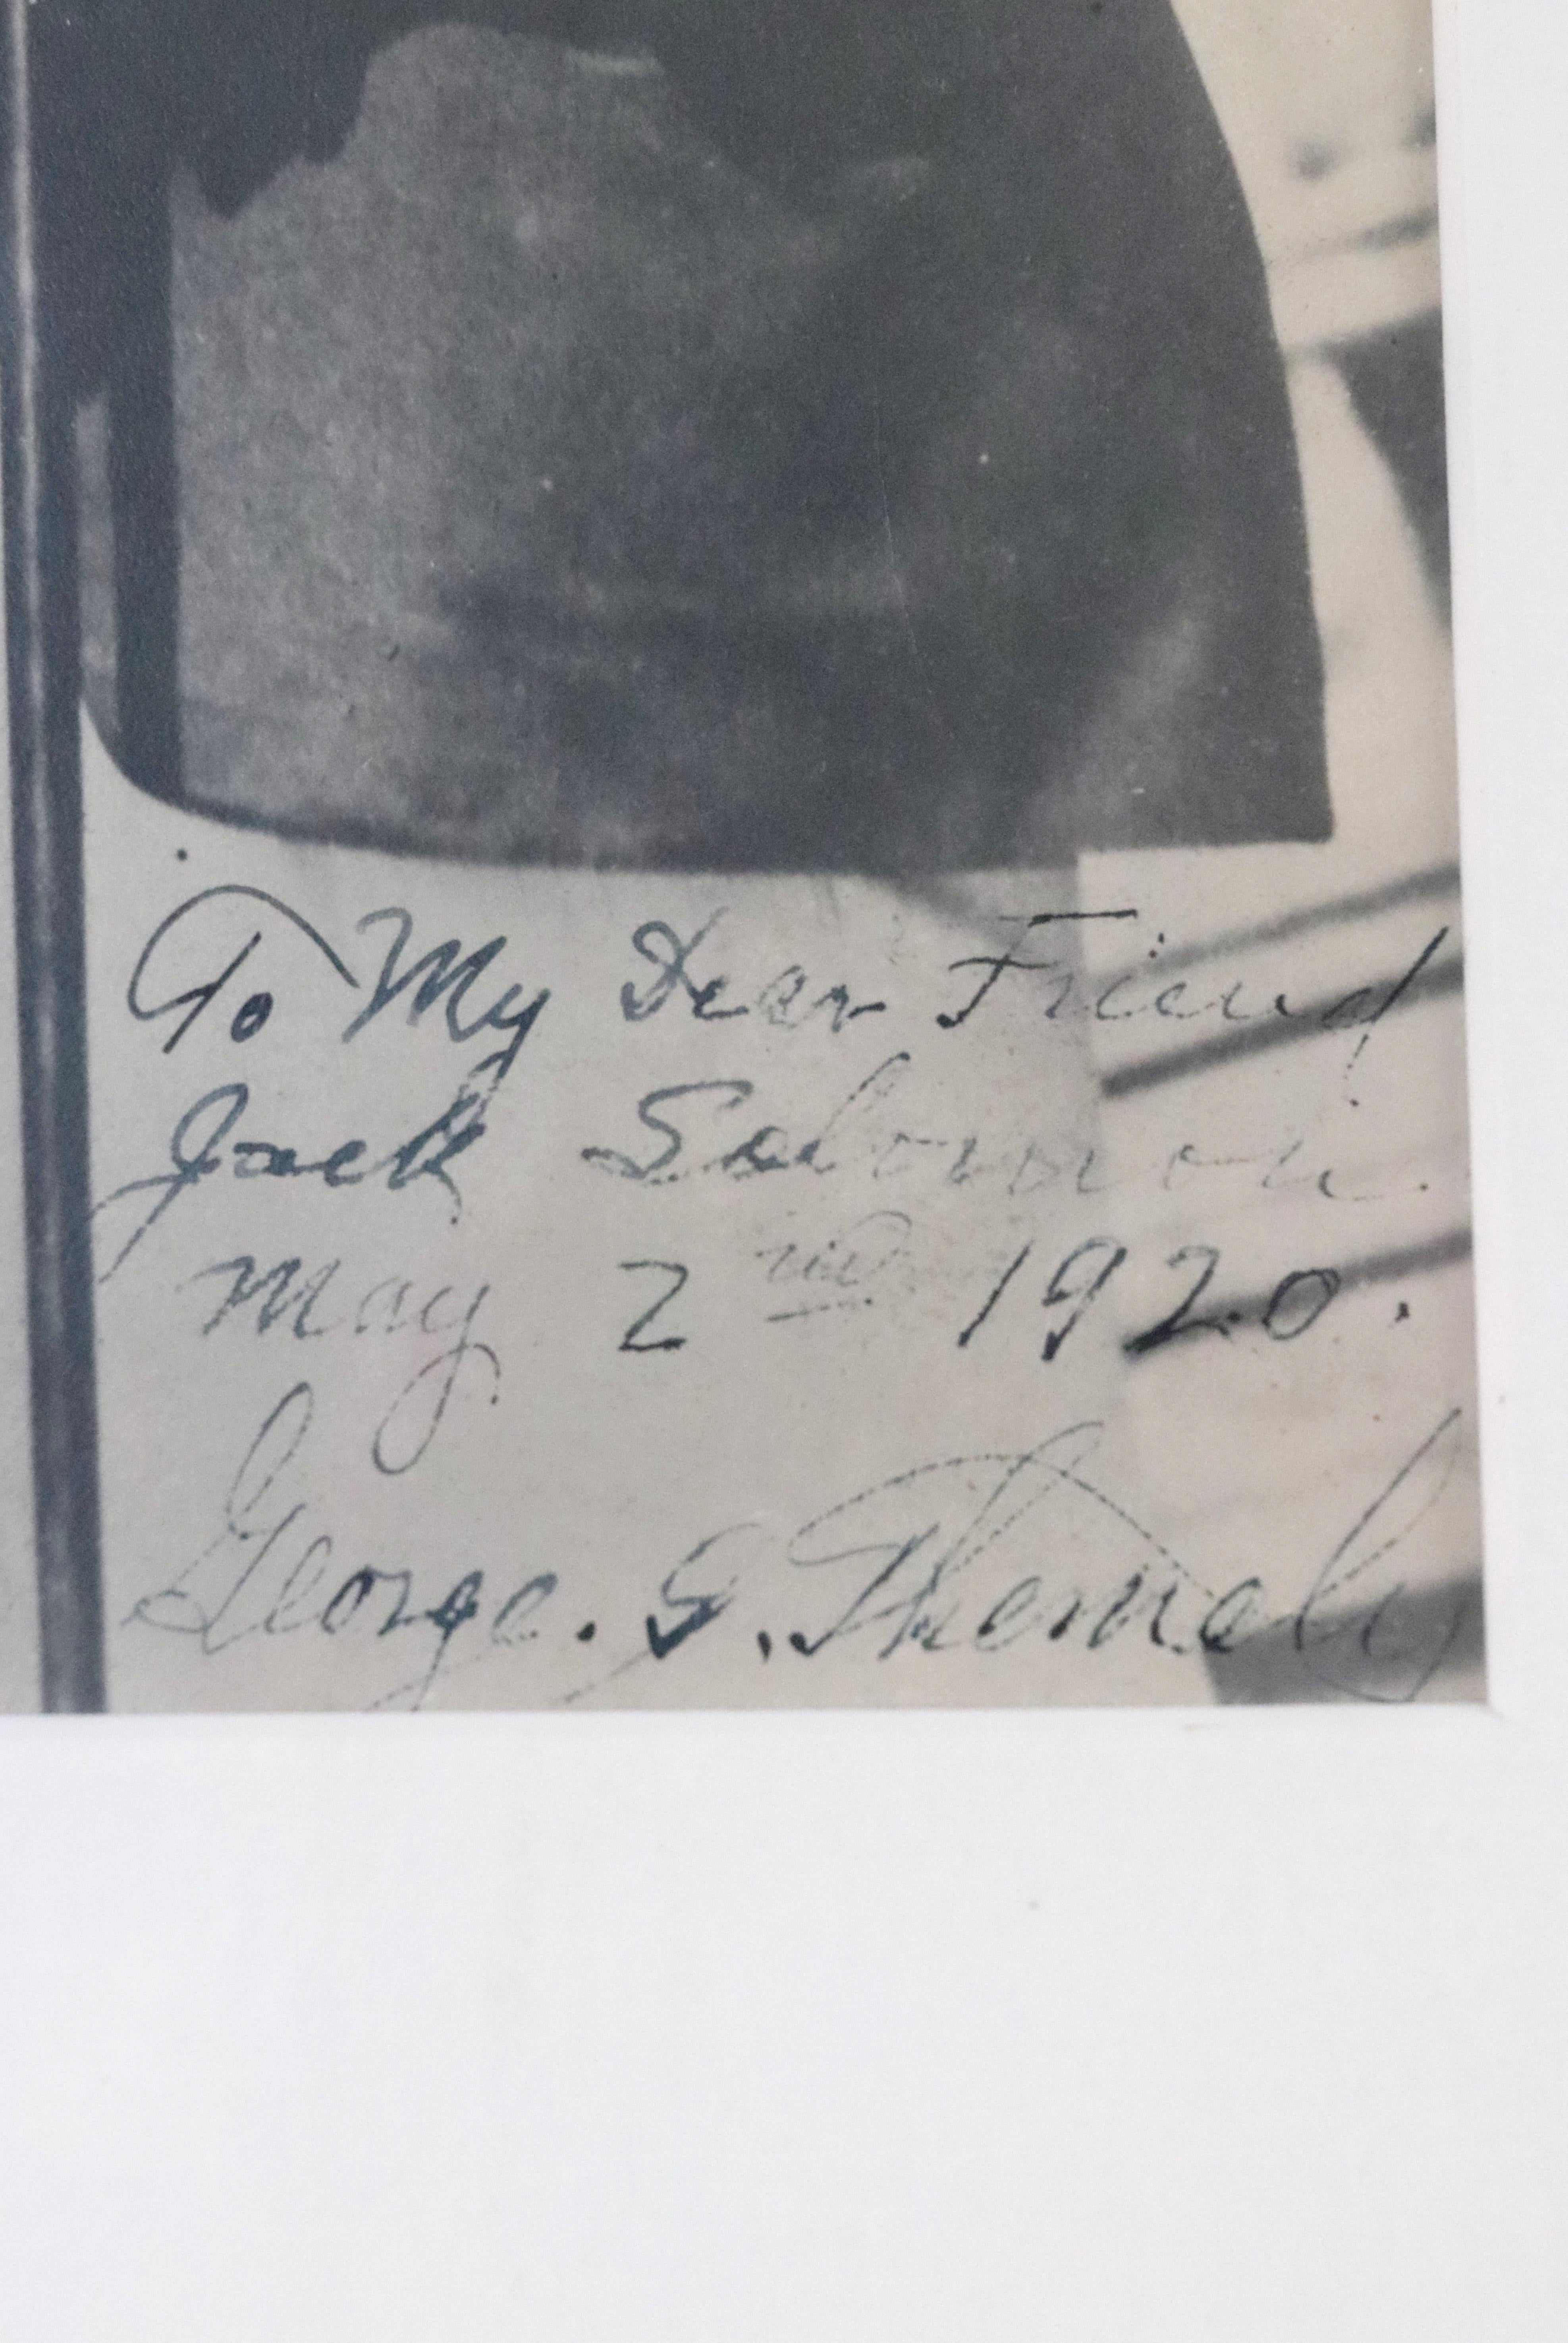 To My Dear Friend
Jack Solomon.
May 2nd 1920.
George.